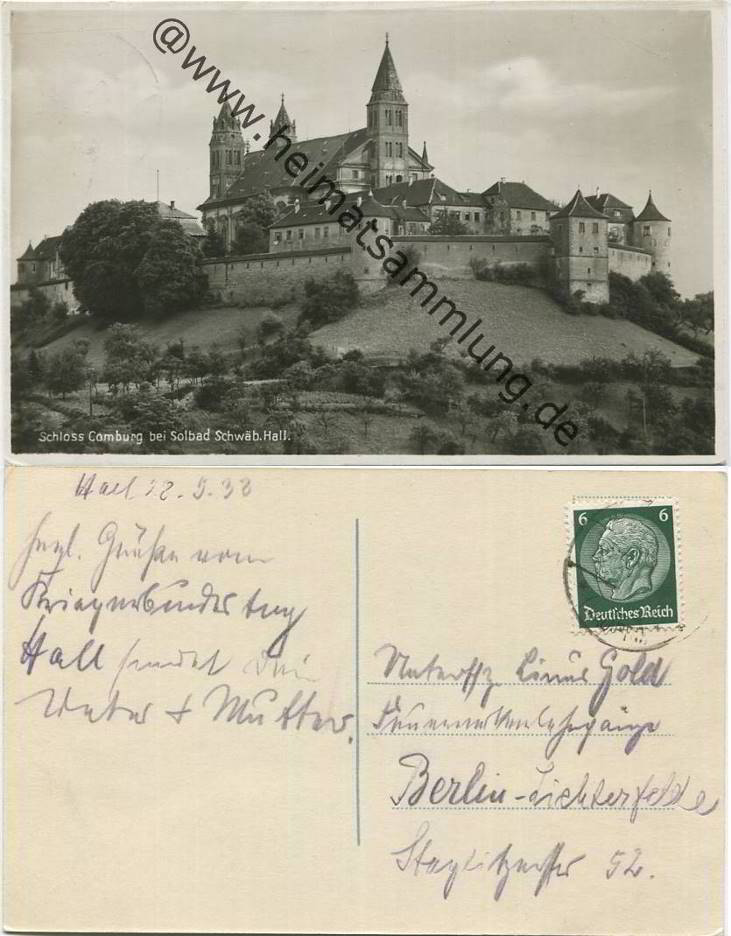 @www.heimatsammlung.de
Schloss Comburg bei Solbad Schwäb. Hall.
Hall 22.5.38
6 6
Deutsches Reich
Herzl. Grüße vom
Kriegerbundestag
Hall sendet Dein
Vater + Mutter.
Unteroffz. Linus Gold
Feuerwerkerlehrgänge
Berlin-Lichterfelde
Steglitzerstr 52.